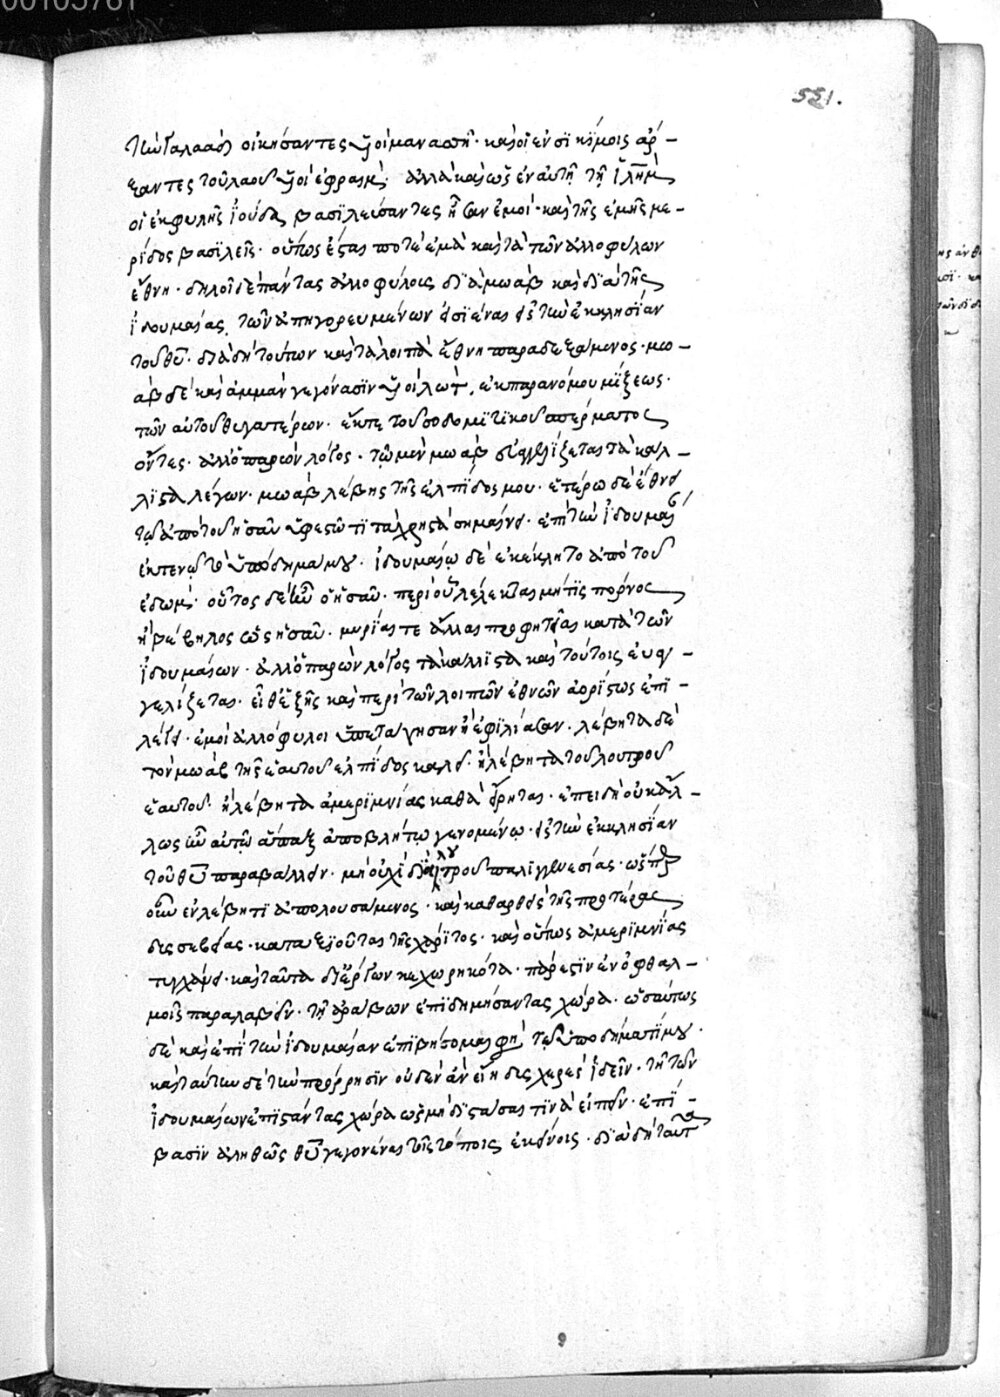 00105761
551.
τὼ Γαλαὰδ οἰκήσαντες υἱοὶ μανασσῆ · καὶ οἱ ἐν σϊκήμοις ἄρ-
ξαντες τοῦ λαοῦ υἱοὶ ἐφραὶμ · ἀλλὰ καὶ ὡς ἐν αὐτῇ τῇ ἱλῆμ
οἱ ἐκ φυλῆς ϊούδα βασϊλεύσαντες ἦσαν ἐμοί · καὶ τῆς ἐμῆς με-
ρίδος βασϊλεῖς · οὕτως ἔσται ποτὲ ἐμὰ καὶ τὰ τῶν ἀλλοφύλων
ἔθνη · δηλοῖ δὲ πάντας ἀλλοφύλους δϊὰ μωὰβ καὶ δϊὰ τῆς
ϊδουμαίας τῶν ἀπηγορευμένων εἰσϊέναι εἰς τὼ ἐκκλησίαν
τοῦ θῦ · διὰ δὴ τούτων καὶ τὰ λοιπὰ ἔθνη παραδεξάμενος · μω-
ὰβ δὲ καὶ ἀμμὰν γεγόνασϊν υἱοὶ λὼτ, ἐκ παρανόμου μίξεως
τῶν αὐτοῦ θυγατέρων · ἔκ τε τοῦ σοδομϊτϊκοῦ σπέρματος
ὄντες · ἀλλ' ὁ παρὼν λόγος · τῷ μὲν μωὰβ εὐαγγελίζεται τὰ κάλ-
λϊστα λέγων · μωὰβ λέβης τῆς ἐλπίδος μου · ἑτέρῳ δὲ ἔθνει
τῷ ἀπὸ τοῦ ἠσαῦ ὑφεστῶτϊ τὰ χρηστὰ σημαίνει · ἐπὶ τὼ ϊδουμαί
ἐκτενῶ τὸ ὑπόδημά μου · ϊδουμαία δὲ ἐκέκλητο ἀπὸ τοῦ
ἐδώμ · οὗτος δὲ ἦν ὁ ἠσαῦ · περὶ οὗ λέλεκται μή τϊς πόρνος
ἢ βέβηλος ὡς ἠσαῦ · μυρίας τε ἄλλας προφητείας κατὰ τῶν
ϊδουμαίων · ἀλλ' ὁ παρὼν λόγος τὰ κάλλϊστα καὶ τούτοις εὐαγ-
γελίζεται · εἶθ' ἑξῆς καὶ περὶ τῶν λοιπῶν ἐθνῶν ἀορίστως ἐπϊ-
λέγει · ἐμοὶ ἀλλόφυλοι ὑπετάγησαν ἢ ἐφϊλίασαν · λέβητα δὲ
τὸν μωὰβ τῆς ἑαυτοῦ ἐλπίδος καλεῖ · ἢ λέβητα τοῦ λουτροῦ
ἑαυτοῦ · ἢ λέβητα ἀμερϊμνίας καθὰ εἴρηται · ἐπειδὴ οὐκ ἄλ-
λως ἦν αὐτῷ ἅπαξ ἀποβλήτῳ γενομένῳ · εἰς τὼ ἐκκλησίαν
τοῦ θῦ παραβάλλειν · μὴ οὐχὶ διὰ λουτροῦ παλϊγγενεσίας · ὥσπερ
οὖν ἐν λέβητϊ ἀπολουσάμενος · καὶ καθαρθεὶς τῆς προτέρας
δυσσεβείας · καταξϊοῦται τῆς χάρϊτος · καὶ οὕτως ἀμερϊμνίας
τυγχάνει · καὶ ταῦτα δϊ' ἔργων κεχωρηκότα · πάρεστϊν ἐν ὀφθαλ-
μοῖς παραλαβεῖν · τῇ ἀράβων ἐπϊδημήσαντας χώρα · ὡσαύτως
δὲ καὶ ἐπὶ τὼ ϊδουμαίαν ἐπϊβήσομαι φησὶ τῷ ὑποδήματί μου ·
καὶ ταύτην δὲ τὼ πρόρρησϊν οὐδὲν ἂν εἴη δυσχερὲς ϊδεῖν · τῇ τῶν
ϊδουμαίων ἐπϊστάντας χώρα ὡς μὴ δϊστάσαι τϊνὰ εἰπεῖν · ἐπί-
βασϊν ἀληθῶς θῦ γεγονέναι τοῖς τόποις ἐκείνοις · δϊὰ δὴ ταῦτ